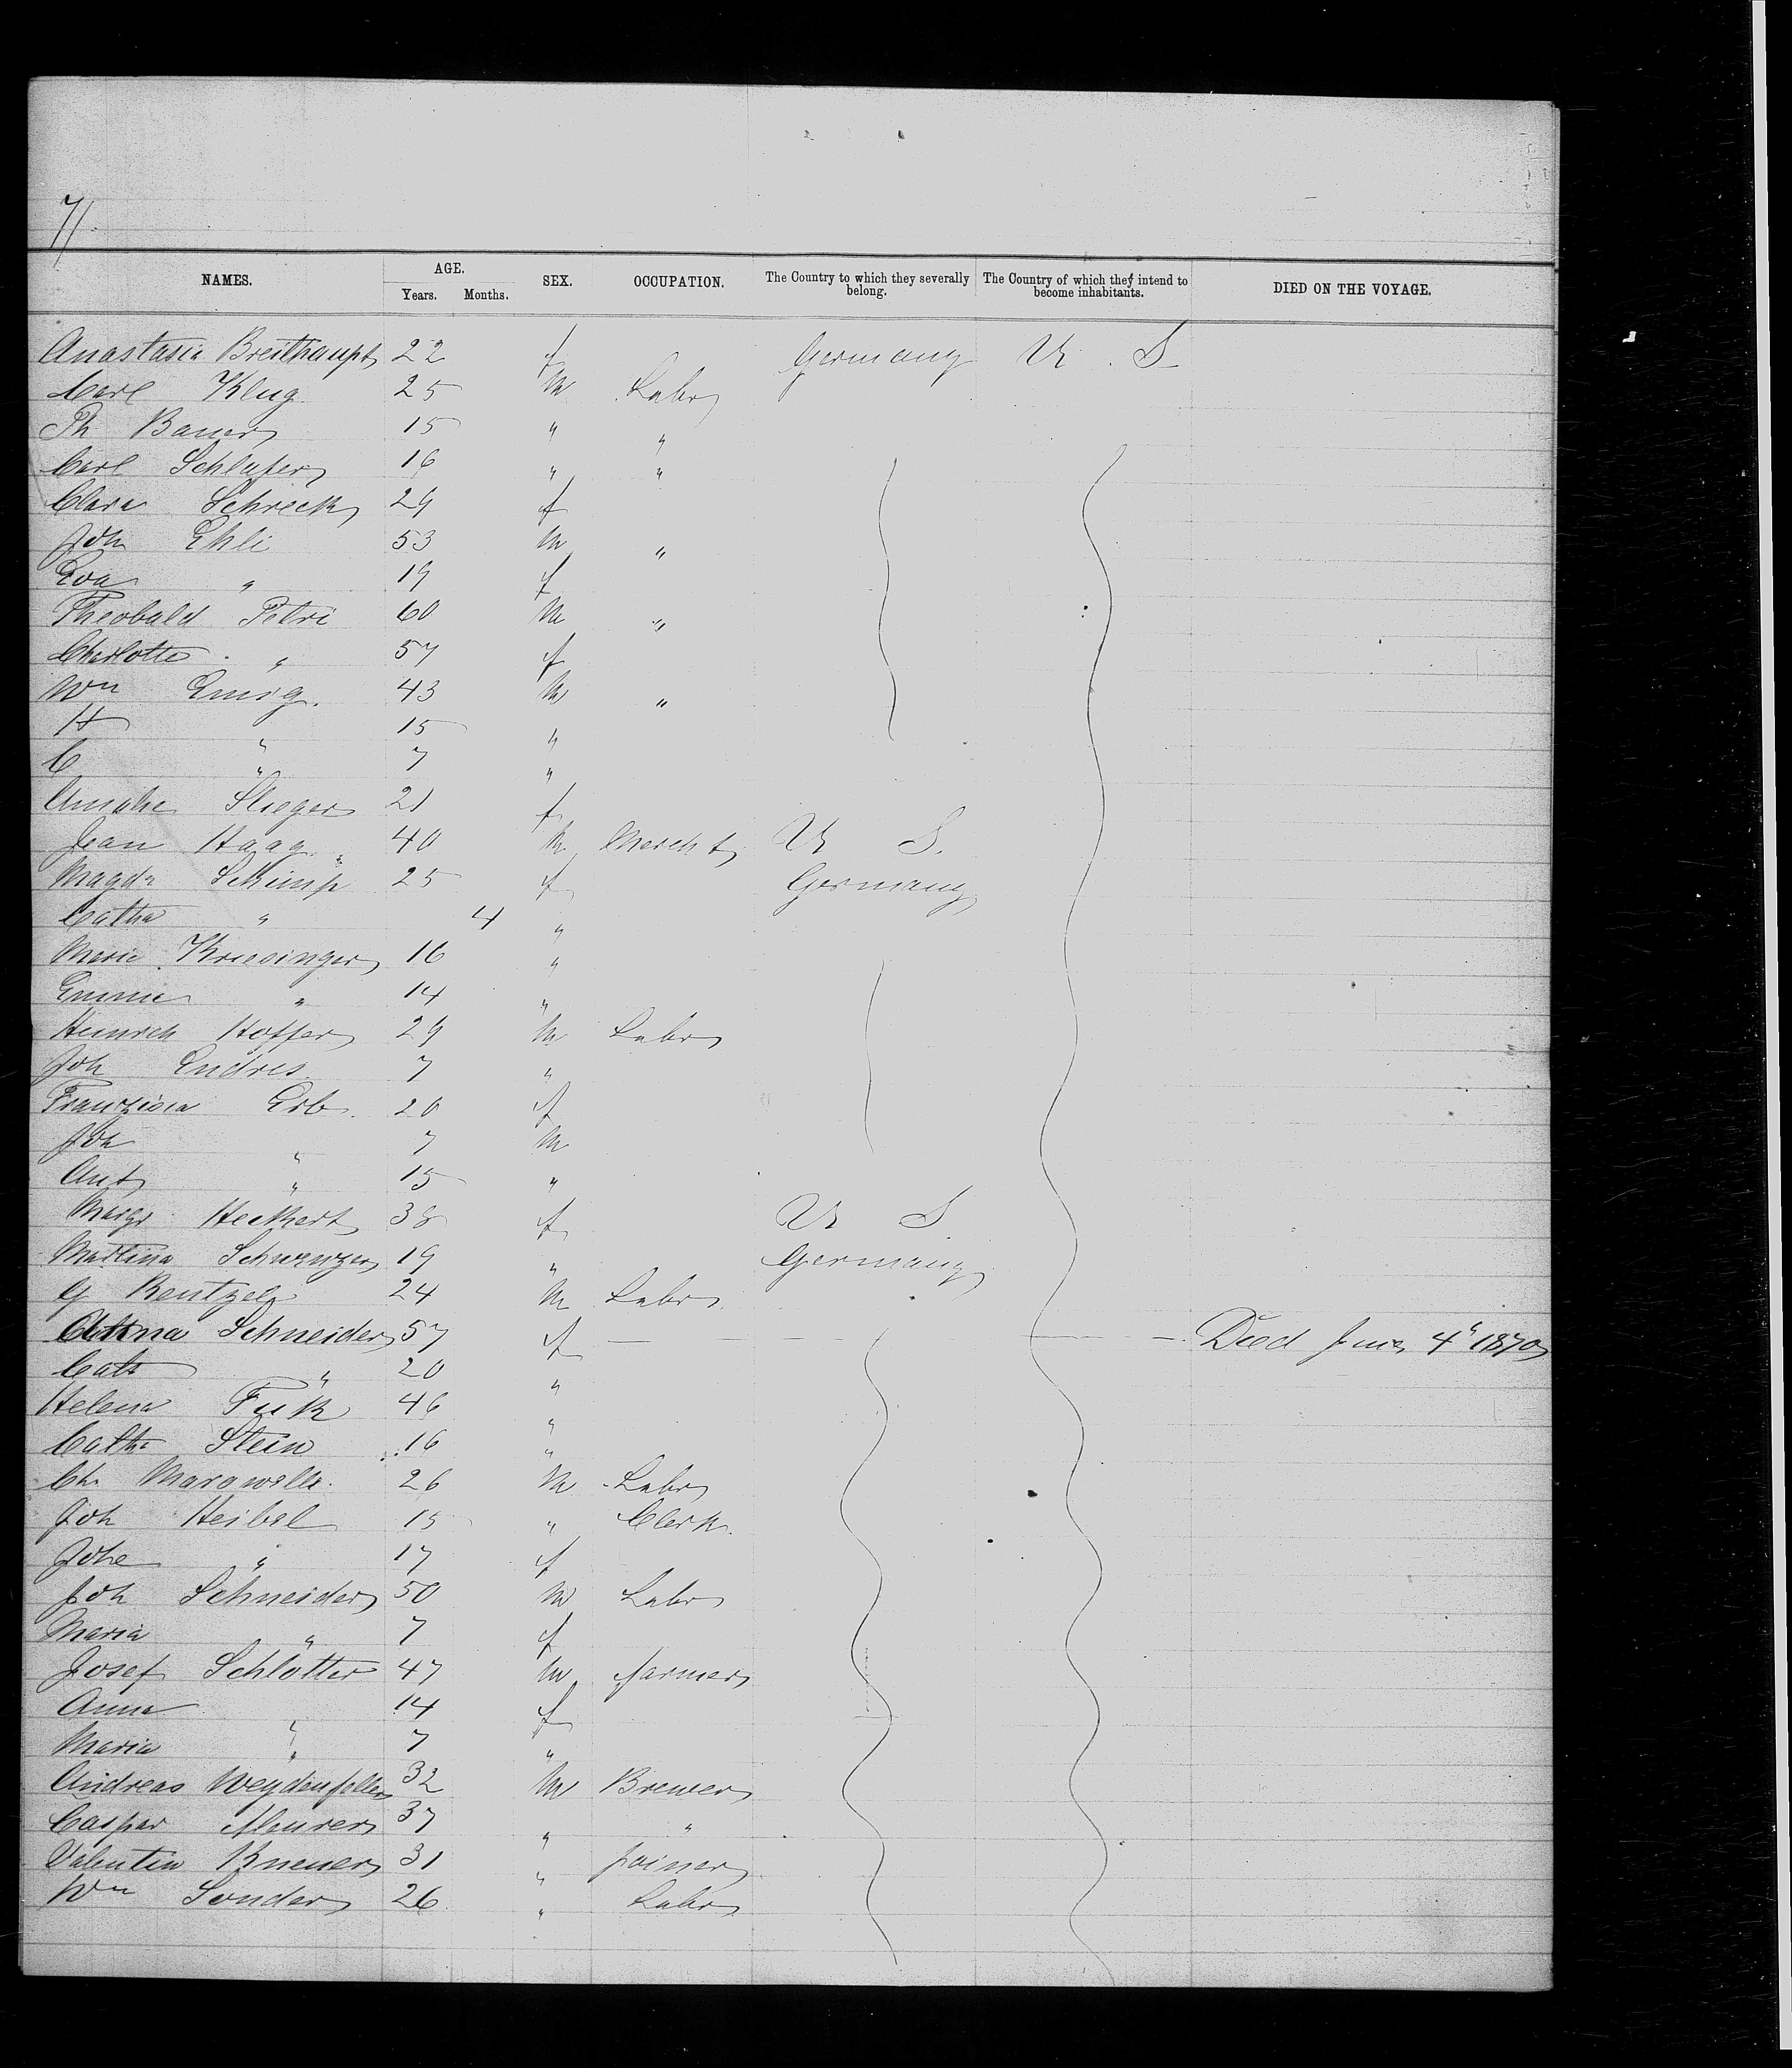 71.
NAMES. AGE. Years. Months. SEX. OCCUPATION. The Country to which they severally belong. The Country of which they intend to become inhabitants. DIED ON THE VOYAGE.
Anastasia Breithaupt 22 f Germany U. S.
Carl Klug 25 m Labr
Ph Bauer 15 " "
Carl Schlafer 16 " "
Clara Schreck 29 f
Joh Ehli 53 m "
Eva " 19 f
Theobald Petri 60 m "
Charlotte " 57 f
Wm Emig. 43 m "
H " 15 "
C " 7 "
Amalie 21 f
Jean Haag 40 m Mercht U S.
Magda Schimp 25 f Germany
Catha " 4 "
Marie Kriesinger 16 "
Emma " 14 "
Heinrich Hoffer 29 m Labr
Joh Endres 7 "
Franzisca Erb. 20 f
Joh " 7 m
Ant " 15 "
Margr Heckert 38 f U S
Martina 19 " Germany
G Rentzel 24 m Labr
Schneider 57 f Died June 4" 1870
Cath " 20 "
Helena Fuk 46 "
Catha Stein 16 "
Ch. 26 m Labr
Joh Heibel 15 " Clerk.
Johe " 17 f
Joh Schneider 50 m Labr
Maria " 7 f
Josef Schlotter 47 m farmer
Anna " 14 f
Maria " 7 "
Andreas Weydenfeller 32 m Brewer
Caspar Meurer 37 " "
Valentin Kneuer 31 " joiner
Wm Sonder 26 " Labr